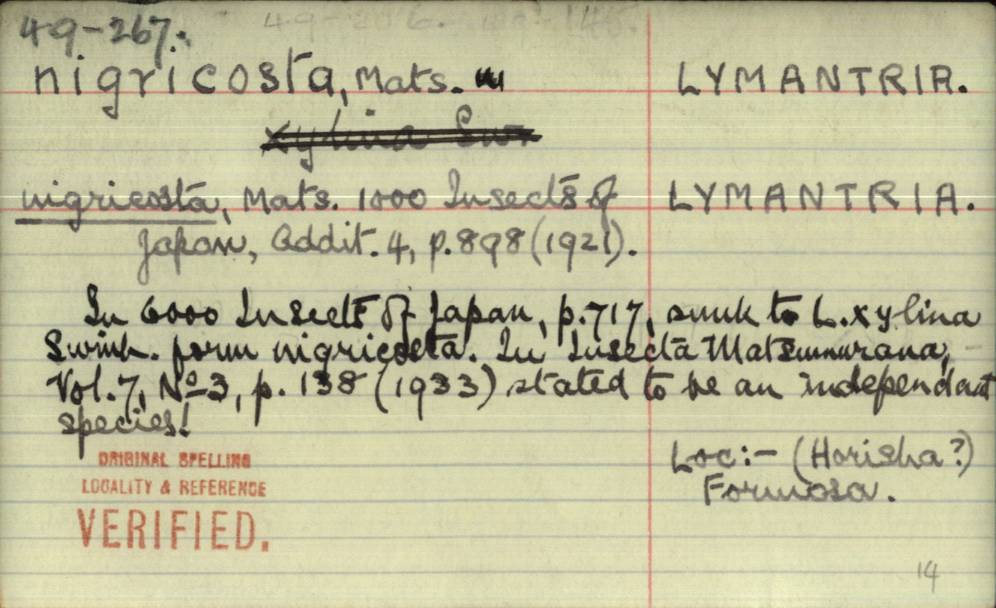 49-267. 49-206. 149-146.
nigricosta, Mats. LYMANTRIA.
xylina Swn
nigricosta, Mats. 1000 Insects of LYMANTRIA.
Japan, Addit. 4, p. 898 (1921).
In 6000 Insects of Japan, p. 717, sunk to L. xylina
Swinh. form nigricosta. In Insecta Matsumurana,
Vol. 7, No 3, p. 138 (1933) stated to be an independant
species!
ORIGINAL SPELLING
LOCALITY & REFERENCE
VERIFIED.
Loc:- (Horisha?)
Formosa.
14